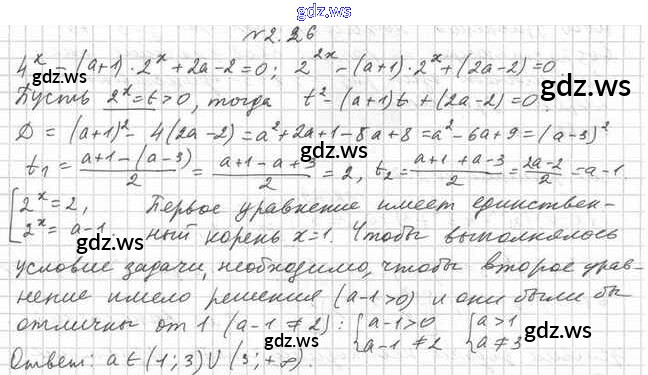 gdz.ws
№2.26
4^x - (a+1)·2^x + 2a-2=0; 2^{2x} - (a+1)·2^x + (2a-2)=0
gdz.ws
gdz.ws
Пусть 2^x = t > 0, тогда t² - (a+1)t + (2a-2) = 0.
D = (a+1)² - 4(2a-2) = a²+2a+1-8a+8 = a²-6a+9 = (a-3)²
t₁ = (a+1-(a-3))/2 = (a+1-a+3)/2 = 2, t₂ = (a+1+a-3)/2 = (2a-2)/2 = a-1
gdz.ws
gdz.ws
[2^x = 2, Первое уравнение имеет единствен-
[2^x = a-1. ный корень x=1. Чтобы выполнялось
условие задачи, необходимо, чтобы второе урав-
нение имело решения (a-1>0) и они были бы
отличны от 1 (a-1≠2): {a-1>0 {a>1
{a-1≠2 {a≠3
gdz.ws
gdz.ws
Ответ: a∈(1;3)∪(3;+∞).
gdz.ws